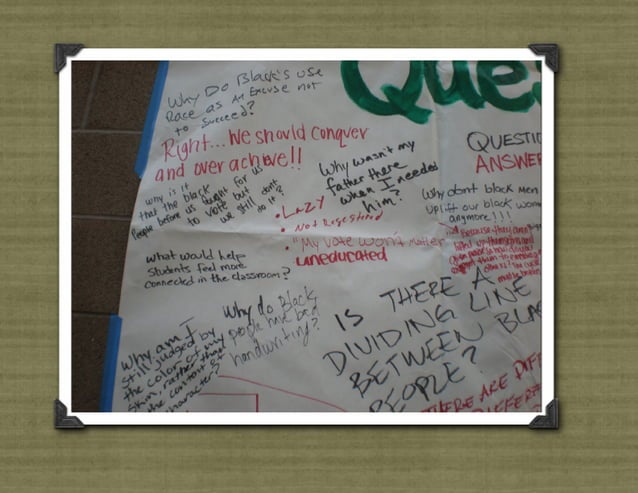 Ques
QUESTIO
ANSWER
Why Do Black's use
Race as An Excuse not
to Succeed?
Right... We should conquer
and over achieve!!
why is it
that the black
People before us fought for us
to vote but
we still don't
do it?
• Lazy
• Not Registered
• "My vote won't matter
• uneducated
Why wasn't my
father there
when I needed
him?
Why don't black men
uplift our black wome
anymore!!!
Because they don't
what would help
students feel more
connected in the classroom?
Why am I
still judged by
the color of my
skin, rather than
the content of
character?
Why do Black
people have bad
handwriting?
IS THERE A
DIVIDING LINE
BETWEEN BLAC
PEOPLE?
THERE ARE DIFF
DIFFERE